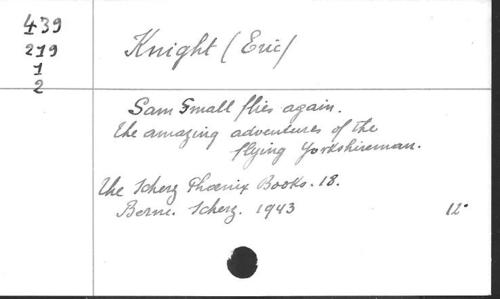 439
219
1
2
Knight (Eric)
Sam Small flies again.
The amazing adventures of the
flying Yorkshireman.
The Scherz Phoenix Books. 18.
Berne. Scherz. 1943 12°